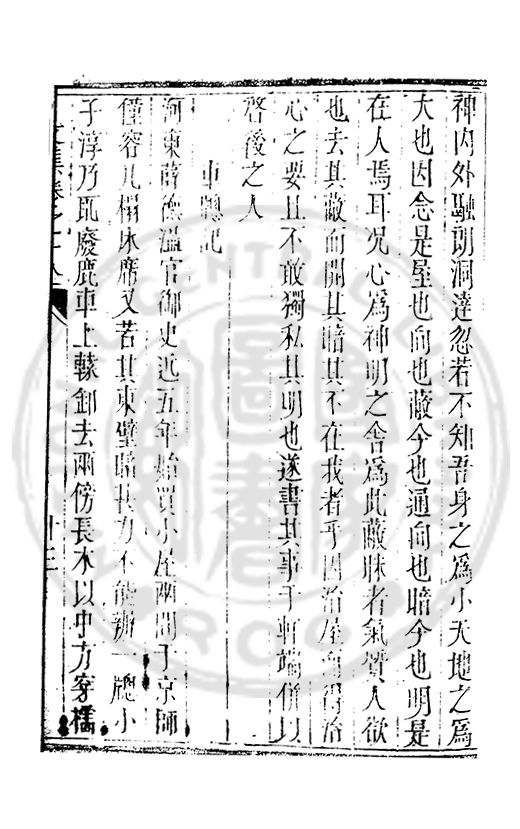 神内外融朗洞達忽若不知吾身之爲小天地之爲
大也因念是屋也向也蔽今也通向也暗今也明是
在人焉耳况心爲神明之舍爲此蔽昧者氣質人欲
也去其蔽而開其暗其不在我者乎因治屋而得治
心之要且不敢獨私其明也遂書其事于軒端併以
啓後之人
車牕記
河東薛德温官御史近五年始買小屋兩間于京師
僅容几榻牀席又苦其東壁暗甚力不能辦一牕小
子淳乃取廢鹿車上轅卸去兩傍長木以中方穿櫺
文集卷之十八
十三